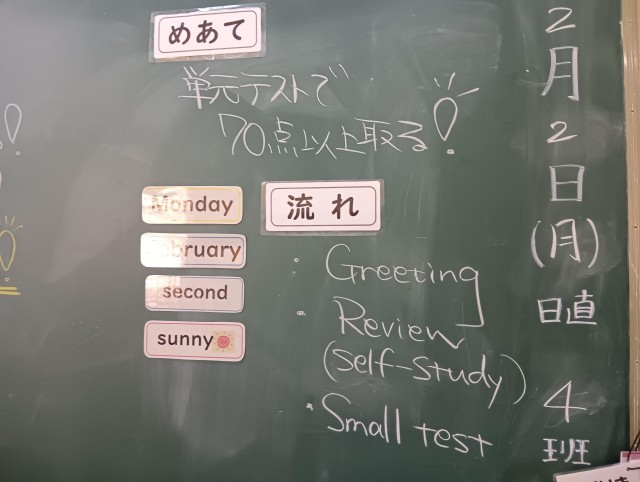 めあて
単元テストで
70点以上取る!
Monday
February
second
sunny
流れ
・Greeting
・Review
(self-study)
・Small test
2月2日(月)
日直
4班